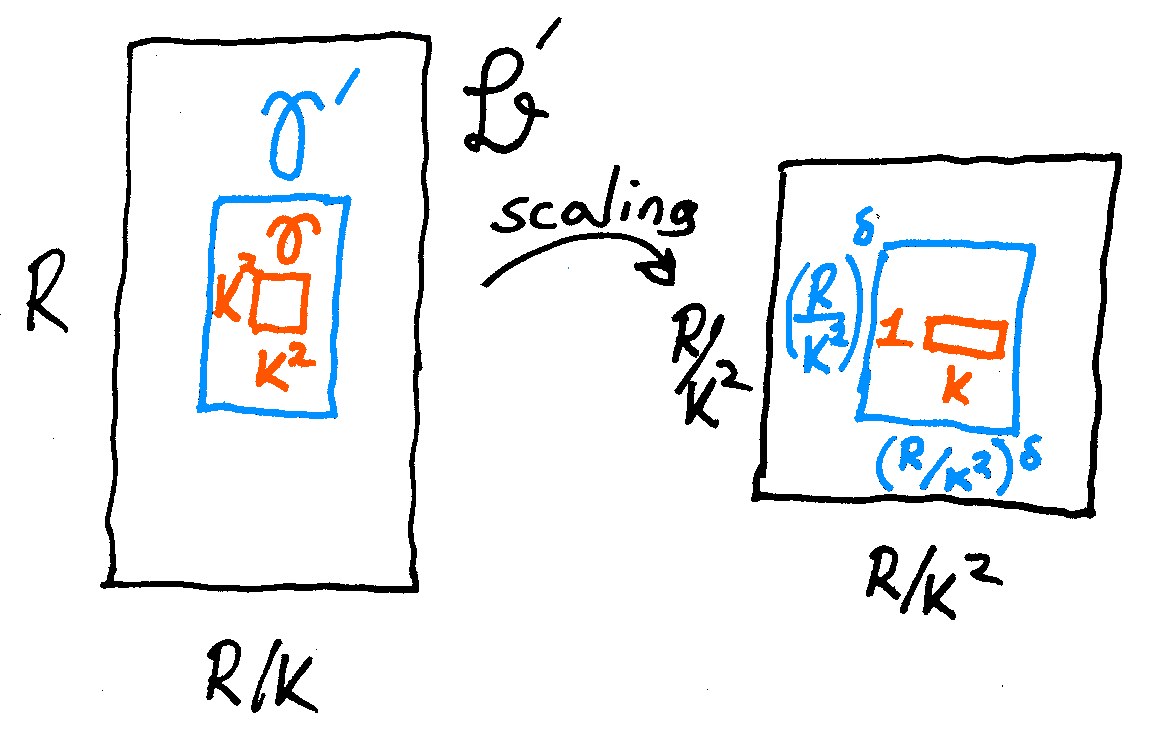 𝓛'
γ'
γ
R
K²
K²
R/K
scaling
(R/K²)^δ
1
K
R/K²
(R/K²)^δ
R/K²